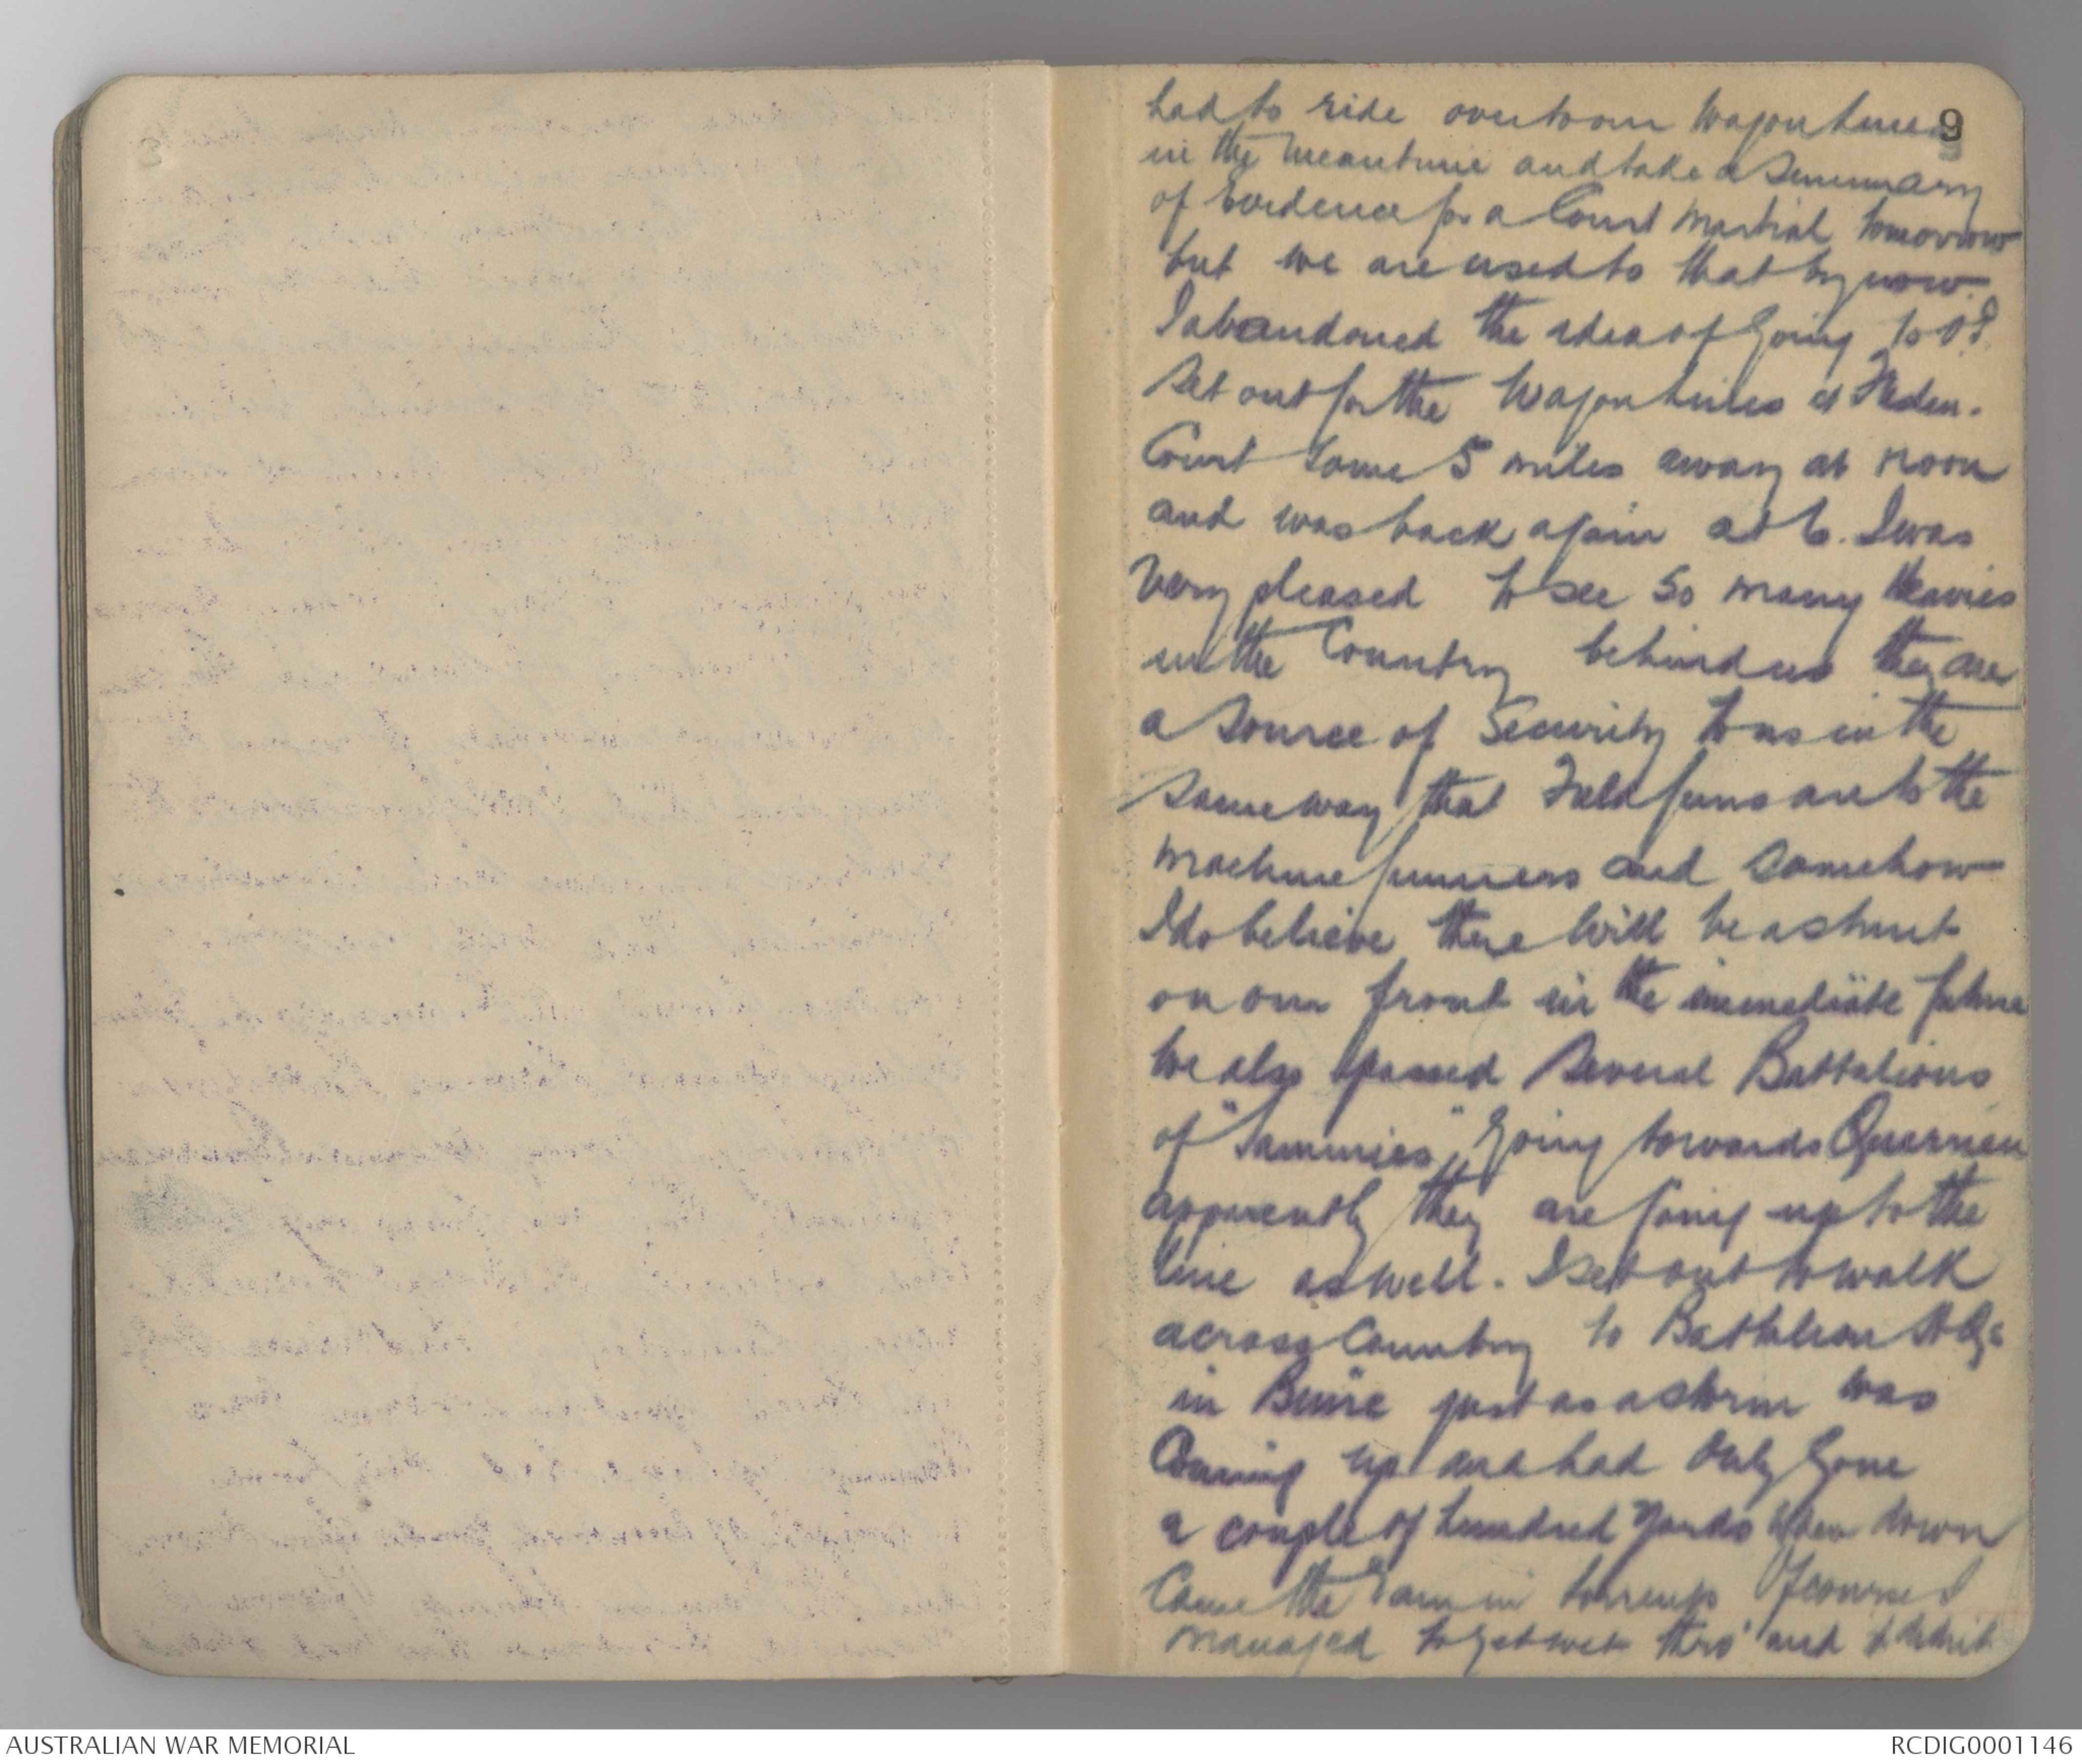 9
had to ride over to our Wagon Lines
in the meantime and take a Summary
of Evidence for a Court Martial tomorrow
but we are used to that by now.
I abandoned the idea of going to O.P.
Set out for the Wagon Lines at
Court some 5 miles away at noon
and was back again at 6. I was
Very pleased to see so many Heavies
in the Country behind us they are
a Source of Security to us in the
same way that Field guns are to the
Machine gunners and somehow
I do believe there will be a stunt
on our front in the immediate future
We also passed several Battalions
of "Sammies" going towards Querrieu
apparently they are going up to the
line as well. I set out to walk
across Country to Battalion HQrs
in Buire just as a storm was
Coming up and had Only gone
a couple of hundred yards when down
Came the rain in torrents Of course I
managed to get wet thro' and I didnt
AUSTRALIAN WAR MEMORIAL
RCDIG0001146